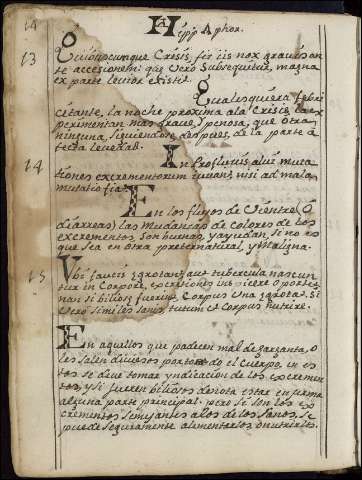 14
Hipp Aphor.
13
Quibuscunque Crisis fit iis nox gravis an
te accesionem: que vero subsequitur, magna
ex parte levior existit.
Qualesquiera febri
citante, la noche proxima ala Crisis, la ex
perimentan mas grave, y penosa, que otra
ninguna, siguiendose despues, de la parte a
fecta
14
In profluviis alui muta
ciones excrementorum iuuant, nisi ad mala
mutatio fia
En los flujos de Vientre (ò
diarreas) las Mudanças de Colores de los
excrementos, son buenas, y ayudan, si no es
que sea en otra preternatural, y Maligna.
15
Ubi fauces egrotant, aut tubercula nascun
tur in Corpore, excretiones inspicere oportet:
nam si biliosę fuerint, Corpus una egrotat: si
vero similes sanis, tutum est Corpus nutrire.
En aquellos que padecen mal de garganta, o
les salen diviesos por todo el cuerpo, in es
tos se deve tomar yndicacion de los excremen
tos, y si fueren biliosos denota estar enferma
alguna parte principal. pero si son los ex
crementos semejantes a los de los sanos, se
puede seguramente alimentarlos, o nutrirlos.